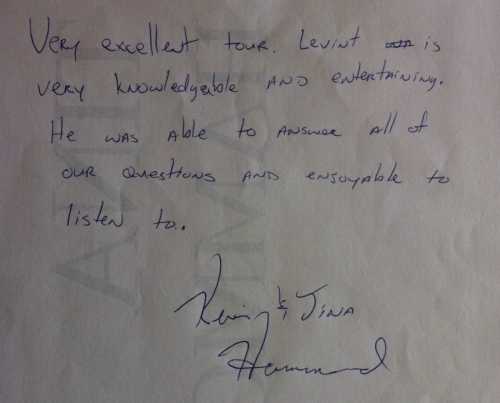 Very excellent tour. Levint is
very knowledgeable and entertaining.
He was able to answer all of
our questions and ensoyable to
listen to..
Kevin & Tina
Hammond